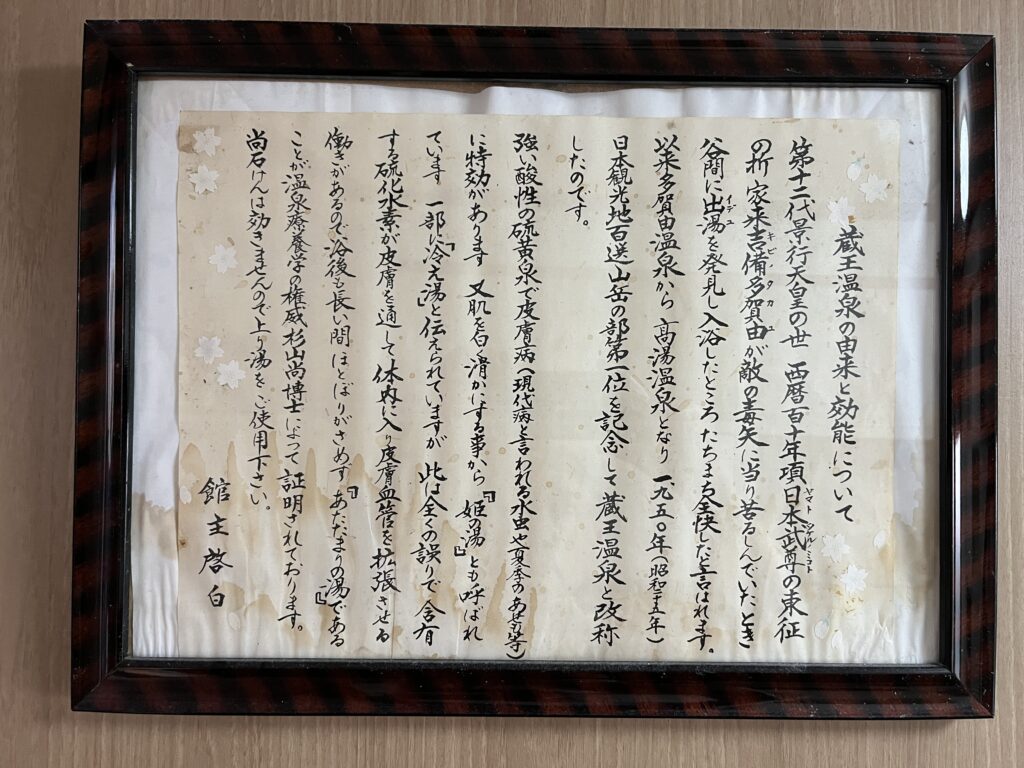 蔵王温泉の由来と効能について
第十二代景行天皇の世　西暦百十年頃日本武尊の東征
ヤマトタケルノミコト
の折　家来吉備多賀由が敵の毒矢に当り苦るしんでいたとき
キビノタカユ
谷間に出湯を発見し入浴したところたちまち全快したと言はれます。
イデユ
以来多賀由温泉から　高湯温泉となり　一九五〇年（昭和二十五年）
日本観光地百選山岳の部第一位を記念して蔵王温泉と改称
したのです。
強い酸性の硫黄泉で皮膚病（現代病と言われる水虫や夏季のあせも等）
に特効があります　又肌を白く滑かにする事から『姫の湯』とも呼ばれ
ています　一部に『冷え湯』と伝えられていますが　此は全くの誤りで含有
する硫化水素が皮膚を通して体内に入り皮膚血管を拡張させる
働きがあるので浴後も長い間ほとぼりがさめず『あたたまりの湯』である
ことが温泉療養学の権威杉山尚博士によって証明されております。
尚石けんは効きませんので上り湯をご使用下さい。
館主啓白